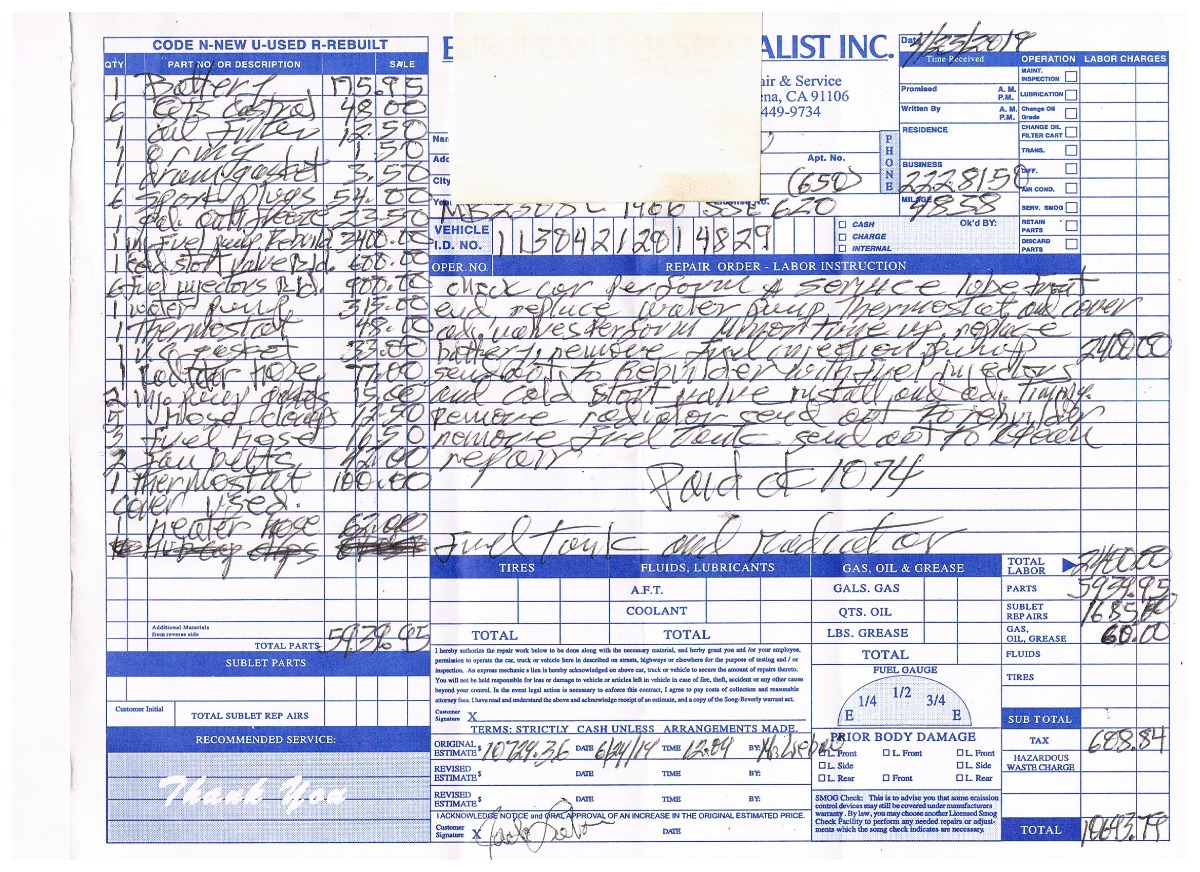 CODE N-NEW U-USED R-REBUILT
QTY PART NO. OR DESCRIPTION SALE
1 Battery 195.95
6 Castrol 48.00
1 oil filter 12.50
1 1 50
1 drain gasket 3.50
6 Spark Plugs 54.00
antifreeze 23.50
1 inj. Fuel pump Rebuild 3400.00
1 cold start valve 600.00
6 Fuel injectors 900.00
1 water pump 315.00
1 thermostat 48.00
1 gasket 33.00
1 Radiator Hose 77.00
2 inj. pump 15.00
5 clamps 12.50
3 fuel hose 16.50
2 fan belts 42.00
1 thermostat 100.00
cover used.
1 heater hose 62.00
Additional Materials
from reverse side
TOTAL PARTS 5939.95
SUBLET PARTS
Customer Initial
TOTAL SUBLET REPAIRS
RECOMMENDED SERVICE:
Thank You
ALIST INC.
air & Service
ena, CA 91106
449-9734
Nam
Add
City
Apt. No.
(650)
Date 4/23/2019
Time Received
Promised A. M. P.M.
Written By A. M. P.M.
RESIDENCE
PHONE
BUSINESS
2228150
MILEAGE
4838
License No.
MB 230SL 1966 SSE 620
VEHICLE I.D. NO. 11384212814829
CASH
CHARGE
INTERNAL
Ok'd BY:
OPERATION LABOR CHARGES
MAINT. INSPECTION
LUBRICATION
Change Oil Grade
CHANGE OIL FILTER CART
TRANS.
DIFF.
AIR COND.
SERV. SMOG
RETAIN PARTS
DISCARD PARTS
OPER. NO. REPAIR ORDER - LABOR INSTRUCTION
check car perform A service lube front
end replace water pump, thermostat and cover
adj. valves perform minor tune up, replace
battery, remove fuel injection pump 2400.00
send out to Rebuilder with fuel injectors
and cold start valve install and adj. timing.
remove radiator send out to rebuilder
remove fuel tank send out to
repair
Paid ck 1074
fuel tank and radiator
TIRES
TOTAL
FLUIDS, LUBRICANTS
A.F.T.
COOLANT
TOTAL
GAS, OIL & GREASE
GALS. GAS
QTS. OIL
LBS. GREASE
TOTAL
FUEL GAUGE
E 1/4 1/2 3/4 E
TOTAL LABOR 2400.00
PARTS 5939.95
SUBLET REPAIRS 1685.00
GAS, OIL, GREASE 60.00
FLUIDS
TIRES
SUB TOTAL
TAX 608.84
HAZARDOUS WASTE CHARGE
TOTAL 10693.79
I hereby authorize the repair work below to be done along with the necessary material, and herby grant you and /for your employee,
permission to operate the car, truck or vehicle here in described on streets, highways or elsewhere for the purpose of testing and / or
inspection. An express mechanic a lien is hereby acknowledged on above car, truck or vehicle to secure the amount of repairs thereto.
You will not be held responsible for loss or damage to vehicle or articles left in vehicle in case of fire, theft, accident or any other cause
beyond your control. In the event legal action is necessary to enforce this contract, I agree to pay costs of collection and reasonable
attorney fees. I have read and understand the above and acknowledge receipt of an estimate, and a copy of the Song-Beverly warrant act.
Customer Signature X
TERMS: STRICTLY CASH UNLESS ARRANGEMENTS MADE.
ORIGINAL ESTIMATE $ 10729.36 DATE 6/24/19 TIME 12.09 BY:
REVISED ESTIMATE $ DATE TIME BY:
REVISED ESTIMATE $ DATE TIME BY:
I ACKNOWLEDGE NOTICE and ORAL APPROVAL OF AN INCREASE IN THE ORIGINAL ESTIMATED PRICE.
Customer Signature X DATE
PRIOR BODY DAMAGE
L. Front L. Front L. Front
L. Side L. Side
L. Rear Front L. Rear
SMOG Check: This is to advise you that some emission
control devices may still be covered under manufacturers
warranty . By law, you may choose another Licensed Smog
Check Facility to perform any needed repairs or adjust-
ments which the somg check indicates are necessary.